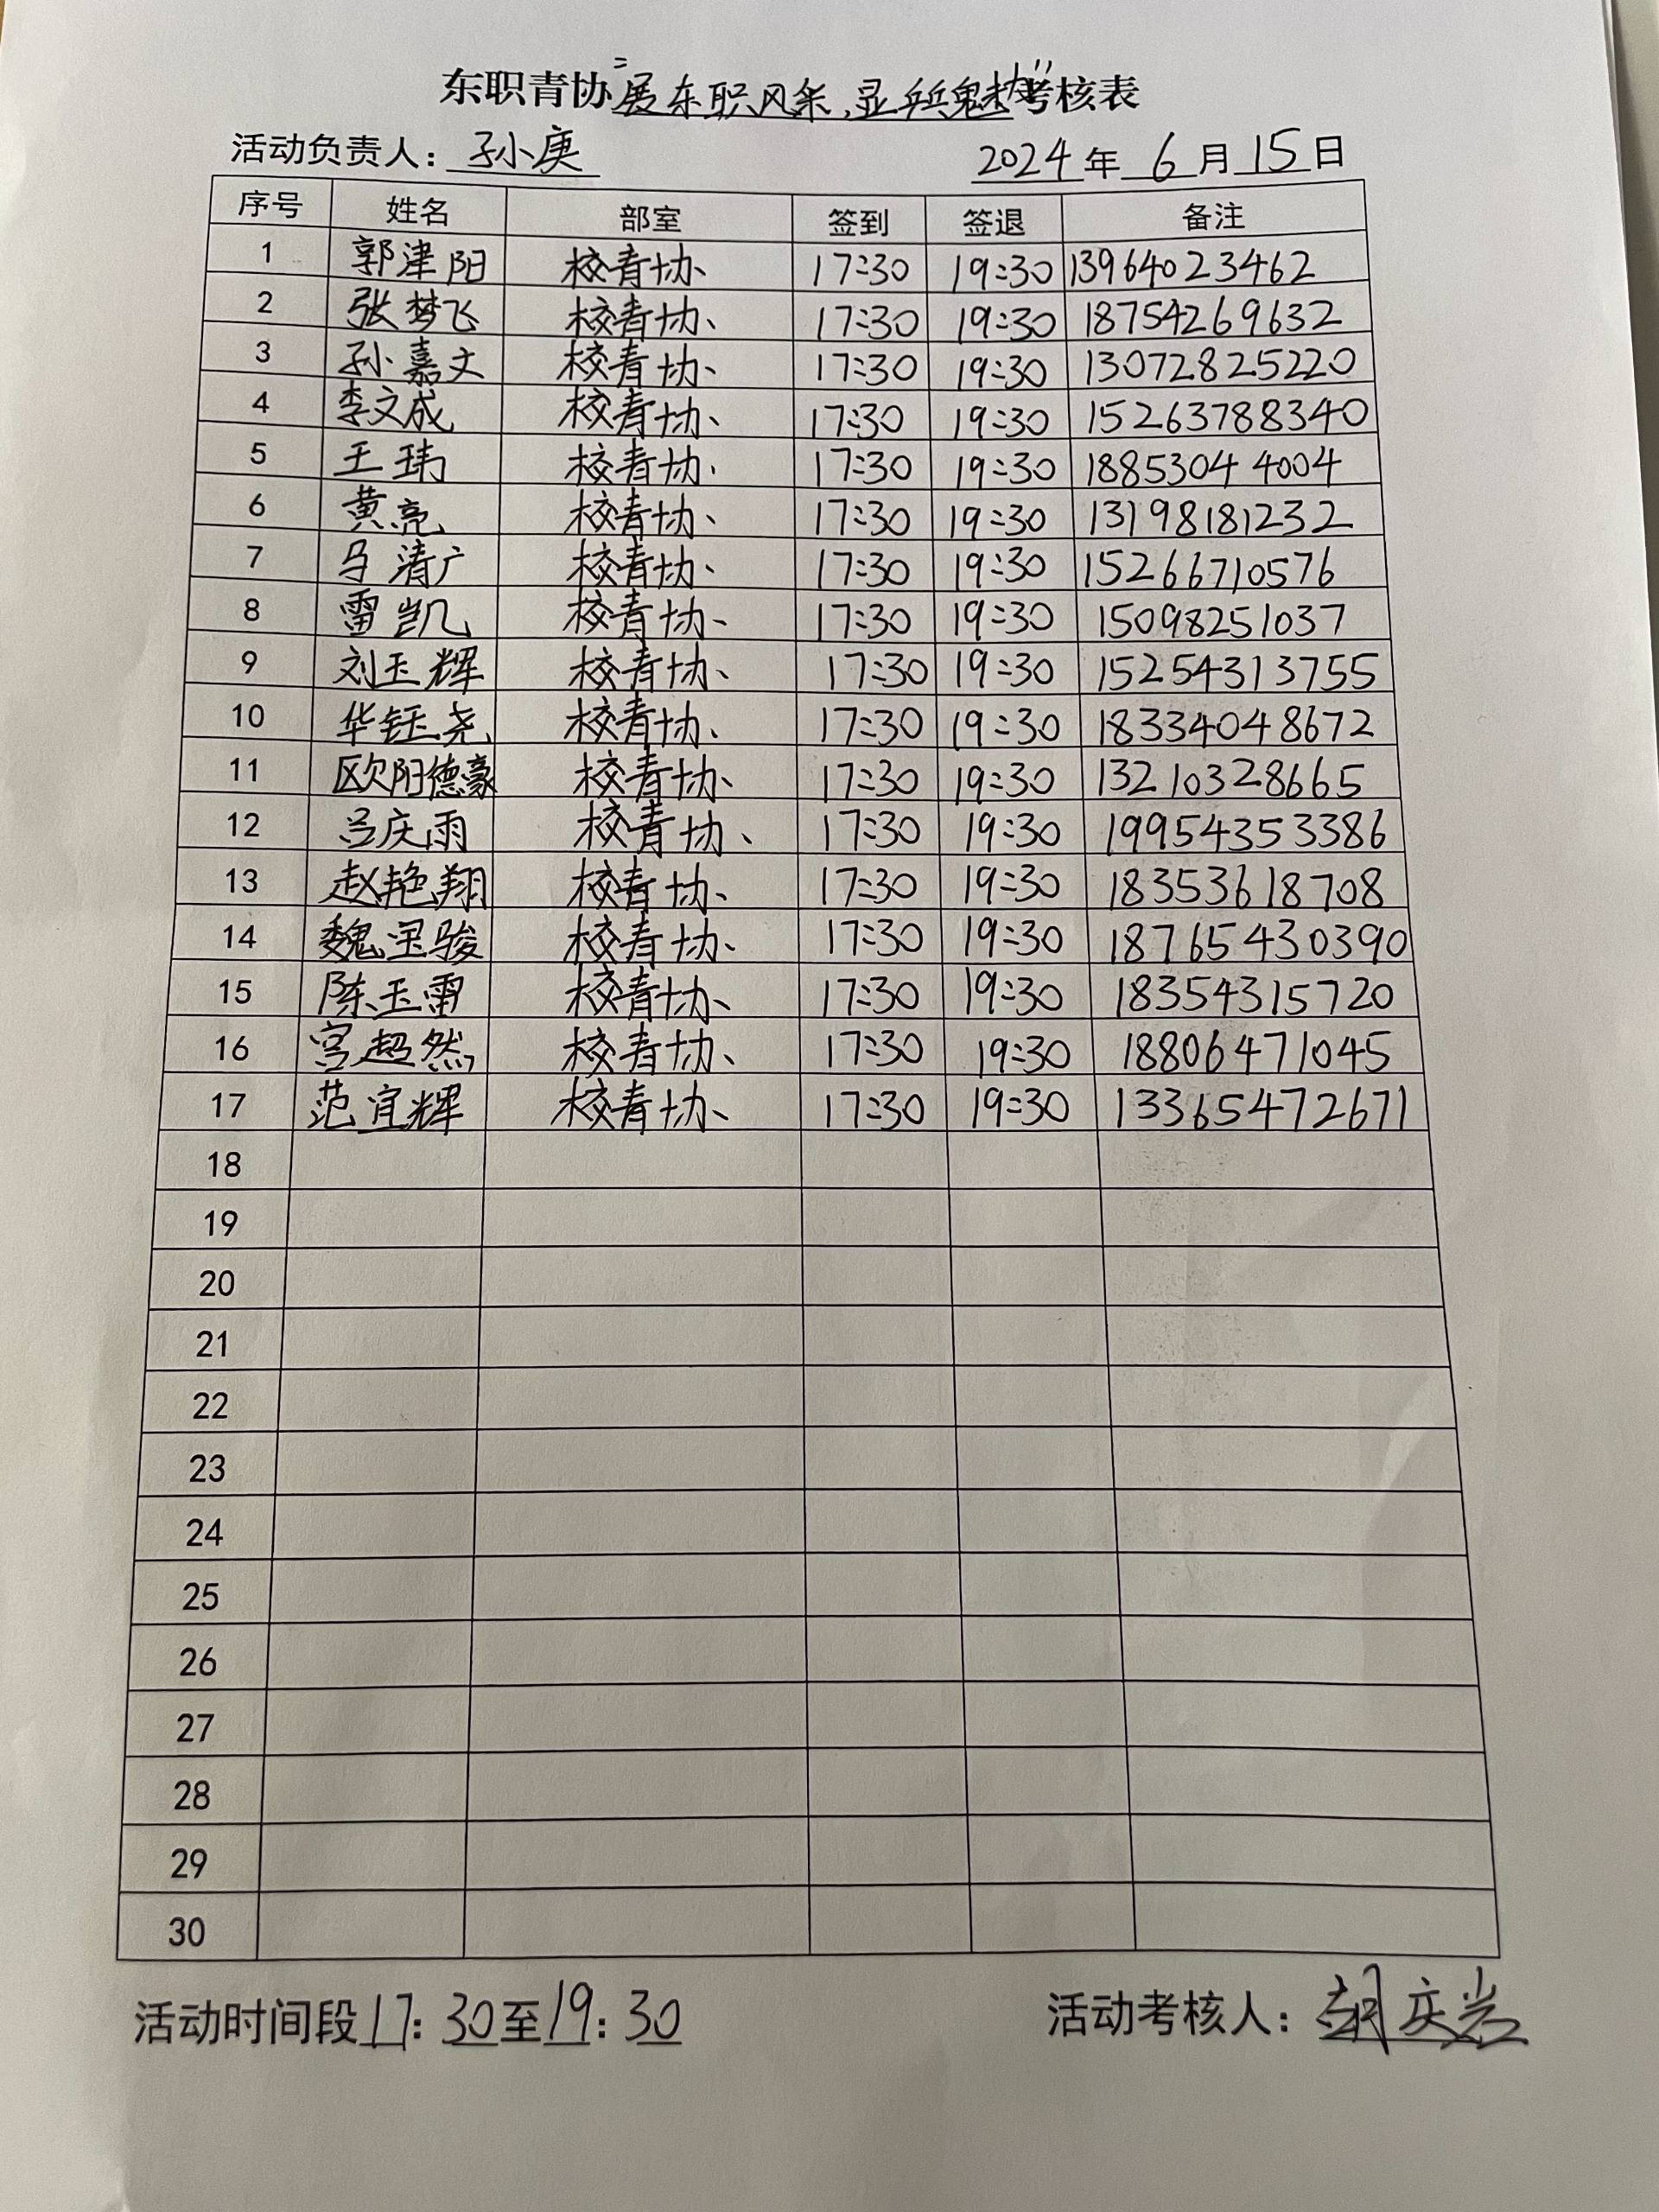 东职青协"展东职风采,显乒乓魅力"考核表
活动负责人:孙小庚 2024年6月15日
序号 姓名 部室 签到 签退 备注
1 郭津阳 校青协 17:30 19:30 13964023462
2 张梦飞 校青协 17:30 19:30 18754269632
3 孙嘉文 校青协 17:30 19:30 13072825220
4 李文成 校青协 17:30 19:30 15263788340
5 王玮 校青协 17:30 19:30 18853044004
6 黄亮 校青协 17:30 19:30 13198181232
7 马清广 校青协 17:30 19:30 15266710576
8 雷凯 校青协 17:30 19:30 15098251037
9 刘玉辉 校青协 17:30 19:30 15254313755
10 华钰尧 校青协 17:30 19:30 18334048672
11 欧阳德豪 校青协 17:30 19:30 13210328665
12 吕庆雨 校青协 17:30 19:30 19954353386
13 赵艳翔 校青协 17:30 19:30 18353618708
14 魏宝骏 校青协 17:30 19:30 18765430390
15 陈玉雷 校青协 17:30 19:30 18354315720
16 宫超然 校青协 17:30 19:30 18806471045
17 范宜辉 校青协 17:30 19:30 13365472671
18
19
20
21
22
23
24
25
26
27
28
29
30
活动时间段17:30至19:30 活动考核人:胡庆岩